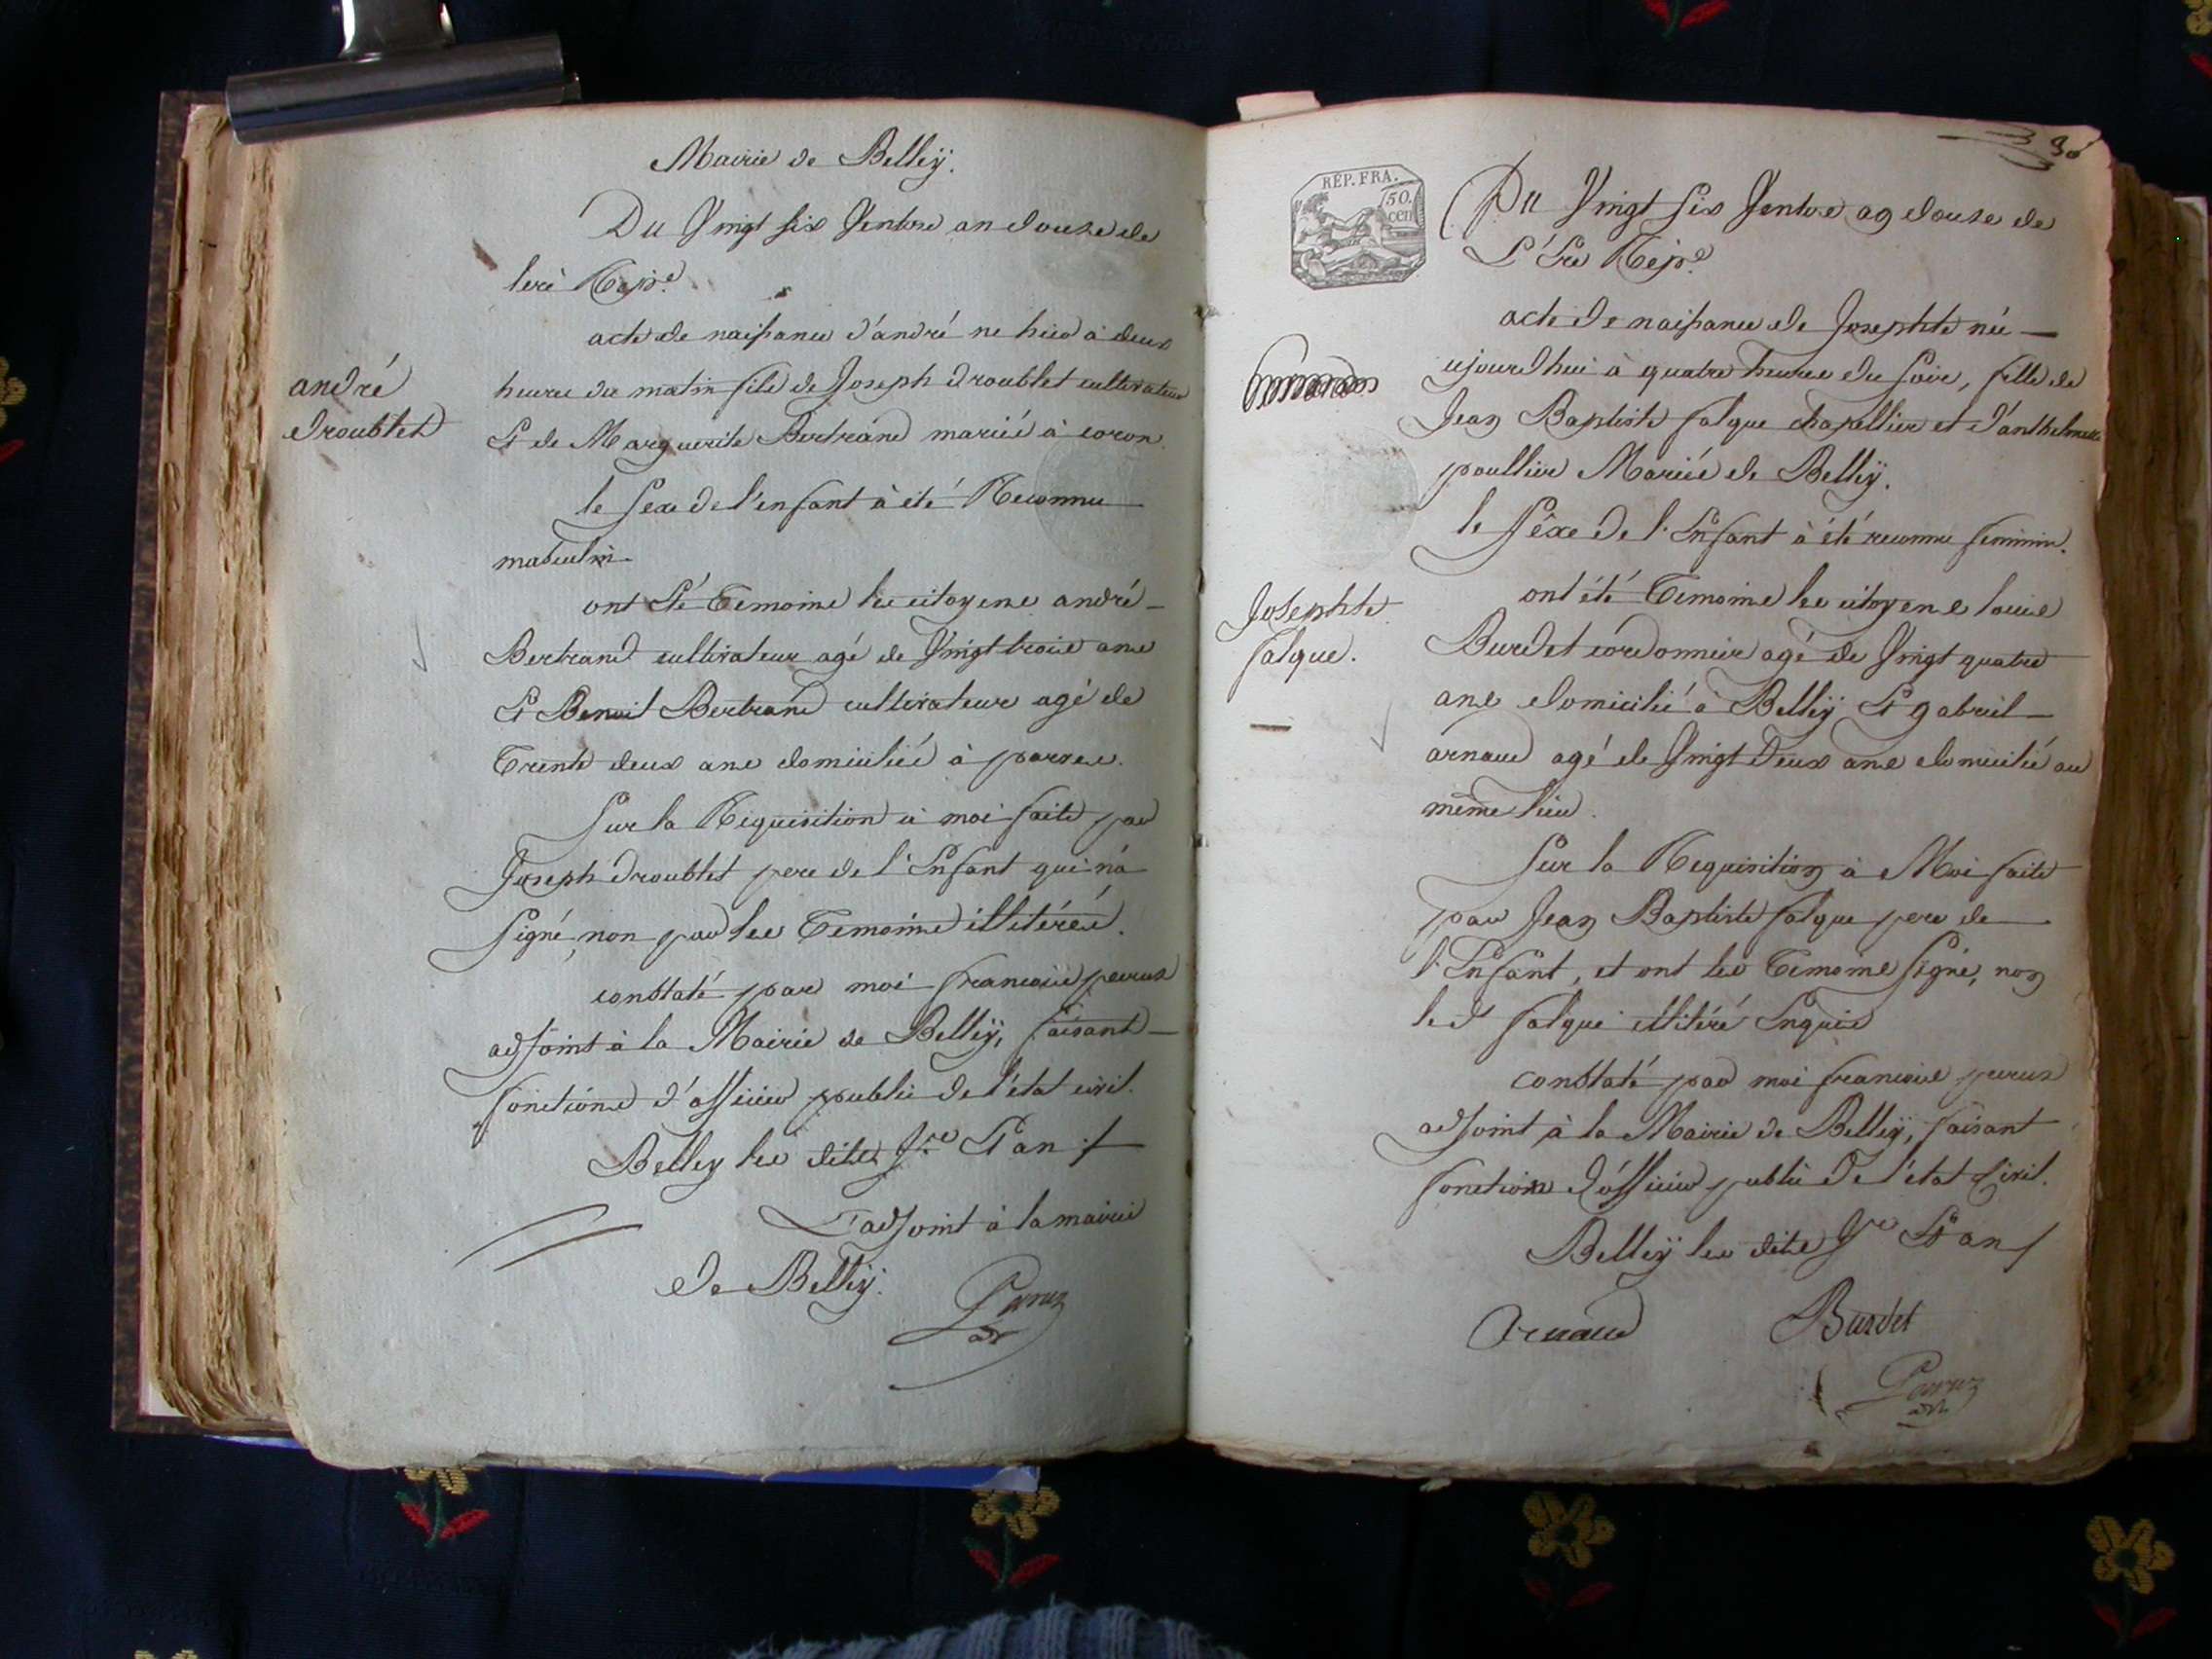 Mairie de Belleÿ.
Du Vingt six Ventose an douze de
l'ere Rep.e
acte de naissance d'andré ne hier à deux
heures du matin fils de Joseph Droublet cultivateur
Et de Marguerite Bertrand mariés à coron
andré
droublet
le Sexe de l'enfant à été Reconnu
masculin
ont Eté Temoins les citoyens andré
Bertrand cultivateur agé de Vingt trois ans
Et Benoit Bertrand cultivateur agé de
Trente deux ans domiciliés à
Sur la Requisition à moi faite par
Joseph Droublet pere de l'Enfant qui n'a
Signé, non par les Temoins illitérés.
constaté par moi francois peruz
adjoint à la Mairie de Belleÿ, faisant
fonctions d'officier public de l'état civil.
Belley les dits Jr Et an
L'adjoint à la mairie
de Belleÿ.
Parruz
adt
30
REP. FRA.
50.
cen
Du Vingt six Ventose an douze de
L'Ere Rép.e
acte de naissance de Josephte née
ujourdhui à quatre heures du soir, fille de
Jean Baptiste falque chapellier et d'anthelmette
poullier Mariés de Belleÿ.
le Sèxe de l'Enfant à été reconnu feminin.
Josephte
falque.
ont été Temoins les citoyens louis
Burdet cordonnier agé de Vingt quatre
ans domicilié à Belleÿ Et gabriel
arnaud agé de Vingt Deux ans domicilié au
même lieu.
Sur la Requisition à Moi faite
par Jean Baptiste falque pere de
l'Enfant, et ont les Temoins Signé, non
led falque illitéré Enquis
constaté par moi francois peruz
adjoint à la Mairie de Belleÿ, faisant
fonctions d'officier public de l'état Civil.
Belleÿ les dits Jr Et an
Arnaud Burdet
Parruz
adt